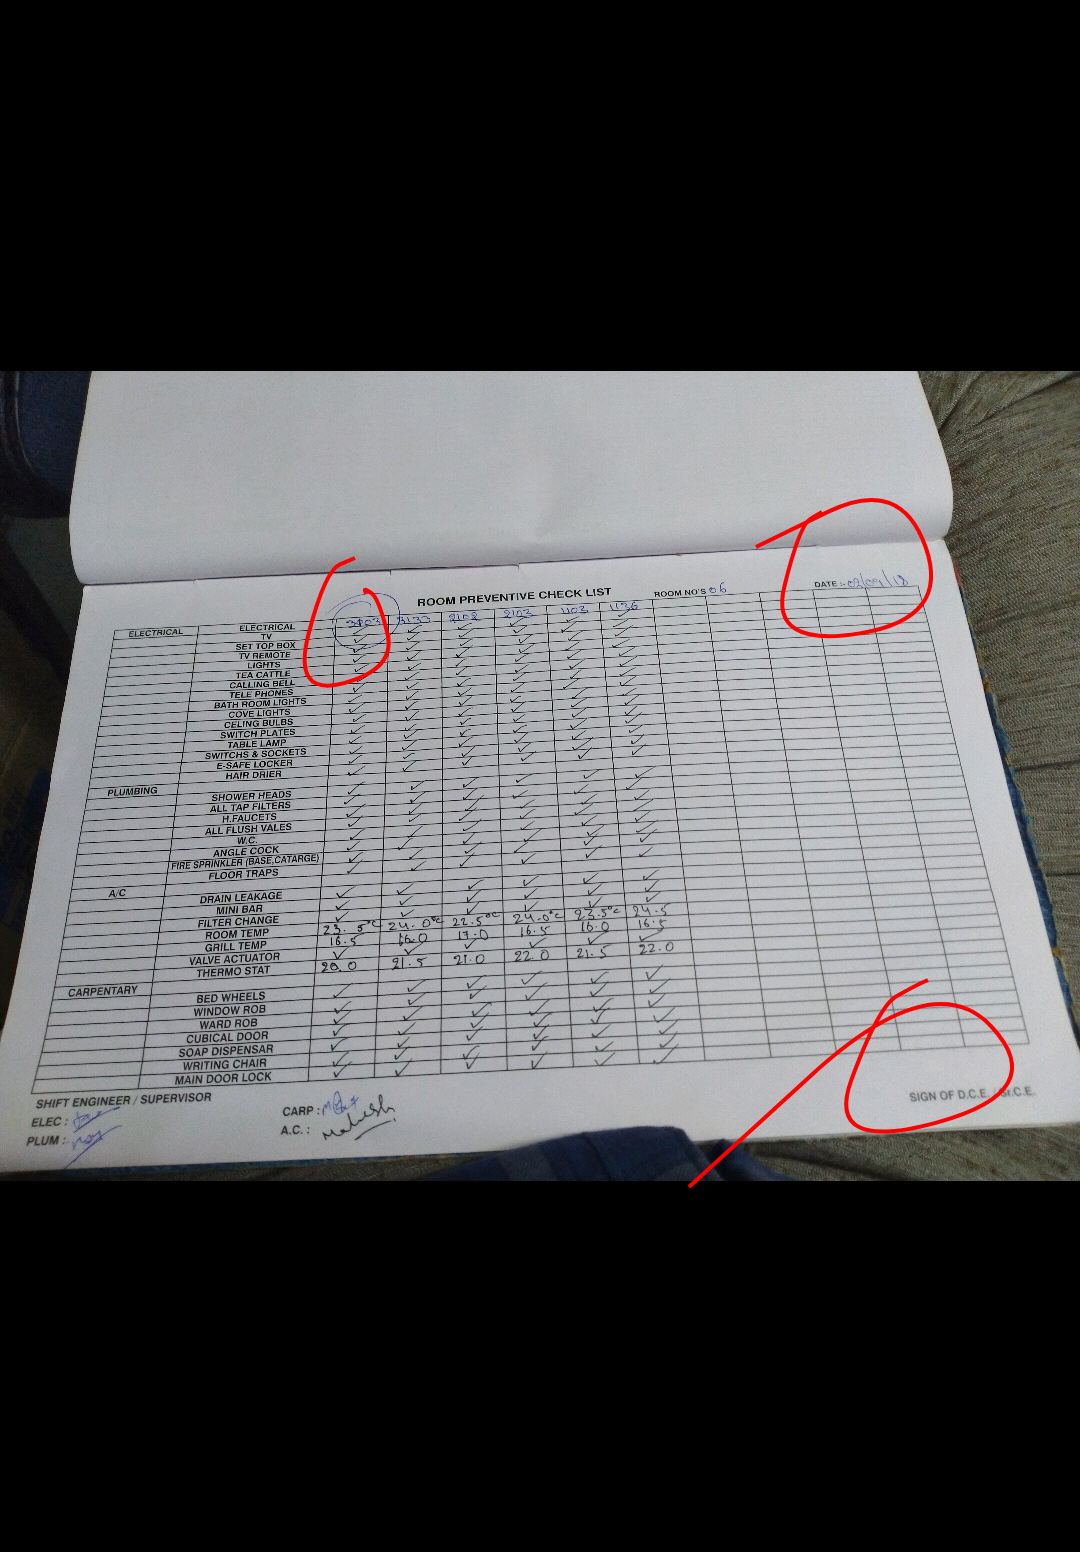 ROOM PREVENTIVE CHECK LIST ROOM NO'S 06 DATE :- 02/09/18
3203 3133 2102 2103 1103 1136
ELECTRICAL ELECTRICAL ✓ ✓ ✓ ✓ ✓ ✓
TV ✓ ✓ ✓ ✓ ✓ ✓
SET TOP BOX ✓ ✓ ✓ ✓ ✓ ✓
TV REMOTE ✓ ✓ ✓ ✓ ✓ ✓
LIGHTS ✓ ✓ ✓ ✓ ✓ ✓
TEA CATTLE ✓ ✓ ✓ ✓ ✓ ✓
CALLING BELL ✓ ✓ ✓ ✓ ✓ ✓
TELE PHONES ✓ ✓ ✓ ✓ ✓ ✓
BATH ROOM LIGHTS ✓ ✓ ✓ ✓ ✓ ✓
COVE LIGHTS ✓ ✓ ✓ ✓ ✓ ✓
CELING BULBS ✓ ✓ ✓ ✓ ✓ ✓
SWITCH PLATES ✓ ✓ ✓ ✓ ✓ ✓
TABLE LAMP ✓ ✓ ✓ ✓ ✓ ✓
SWITCHS & SOCKETS ✓ ✓ ✓ ✓ ✓ ✓
E-SAFE LOCKER ✓ ✓ ✓ ✓ ✓ ✓
HAIR DRIER ✓ ✓ ✓ ✓ ✓ ✓
PLUMBING
SHOWER HEADS ✓ ✓ ✓ ✓ ✓ ✓
ALL TAP FILTERS ✓ ✓ ✓ ✓ ✓ ✓
H.FAUCETS ✓ ✓ ✓ ✓ ✓ ✓
ALL FLUSH VALES ✓ ✓ ✓ ✓ ✓ ✓
W.C. ✓ ✓ ✓ ✓ ✓ ✓
ANGLE COCK ✓ ✓ ✓ ✓ ✓ ✓
FIRE SPRINKLER (BASE,CATARGE) ✓ ✓ ✓ ✓ ✓ ✓
FLOOR TRAPS ✓ ✓ ✓ ✓ ✓ ✓
A/C
DRAIN LEAKAGE ✓ ✓ ✓ ✓ ✓ ✓
MINI BAR ✓ ✓ ✓ ✓ ✓ ✓
FILTER CHANGE ✓ ✓ ✓ ✓ ✓ ✓
ROOM TEMP 23.5°C 24.0°C 22.5°C 24.0°C 23.5°C 24.5
GRILL TEMP 16.5 16.0 17.0 16.5 16.0 16.5
VALVE ACTUATOR ✓ ✓ ✓ ✓ ✓ ✓
THERMO STAT 20.0 21.5 21.0 22.0 21.5 22.0
CARPENTARY
BED WHEELS ✓ ✓ ✓ ✓ ✓ ✓
WINDOW ROB ✓ ✓ ✓ ✓ ✓ ✓
WARD ROB ✓ ✓ ✓ ✓ ✓ ✓
CUBICAL DOOR ✓ ✓ ✓ ✓ ✓ ✓
SOAP DISPENSAR ✓ ✓ ✓ ✓ ✓ ✓
WRITING CHAIR ✓ ✓ ✓ ✓ ✓ ✓
MAIN DOOR LOCK ✓ ✓ ✓ ✓ ✓ ✓
SHIFT ENGINEER / SUPERVISOR SIGN OF D.C.E. / Sr.C.E.
ELEC : CARP :
PLUM : A.C. : Mahesh